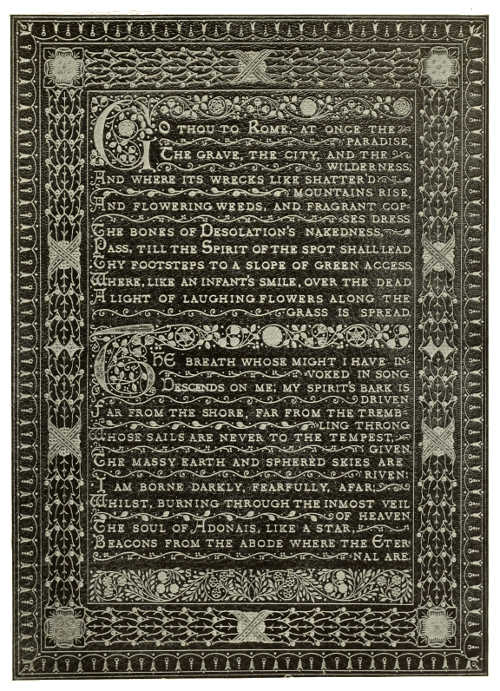 GO THOU TO ROME, AT ONCE THE
PARADISE,
THE GRAVE, THE CITY, AND THE
WILDERNESS;
AND WHERE ITS WRECKS LIKE SHATTER'D
MOUNTAINS RISE,
AND FLOWERING WEEDS, AND FRAGRANT COP-
SES DRESS
THE BONES OF DESOLATION'S NAKEDNESS,
PASS, TILL THE SPIRIT OF THE SPOT SHALL LEAD
THY FOOTSTEPS TO A SLOPE OF GREEN ACCESS,
WHERE, LIKE AN INFANT'S SMILE, OVER THE DEAD
A LIGHT OF LAUGHING FLOWERS ALONG THE
GRASS IS SPREAD.
THE BREATH WHOSE MIGHT I HAVE IN-
VOKED IN SONG
DESCENDS ON ME; MY SPIRIT'S BARK IS
DRIVEN
FAR FROM THE SHORE, FAR FROM THE TREMB-
LING THRONG
WHOSE SAILS ARE NEVER TO THE TEMPEST,
GIVEN
THE MASSY EARTH AND SPHERED SKIES ARE
RIVEN!
I AM BORNE DARKLY, FEARFULLY, AFAR;
WHILST, BURNING THROUGH THE INMOST VEIL
OF HEAVEN
THE SOUL OF ADONAIS, LIKE A STAR,
BEACONS FROM THE ABODE WHERE THE ETER-
NAL ARE.